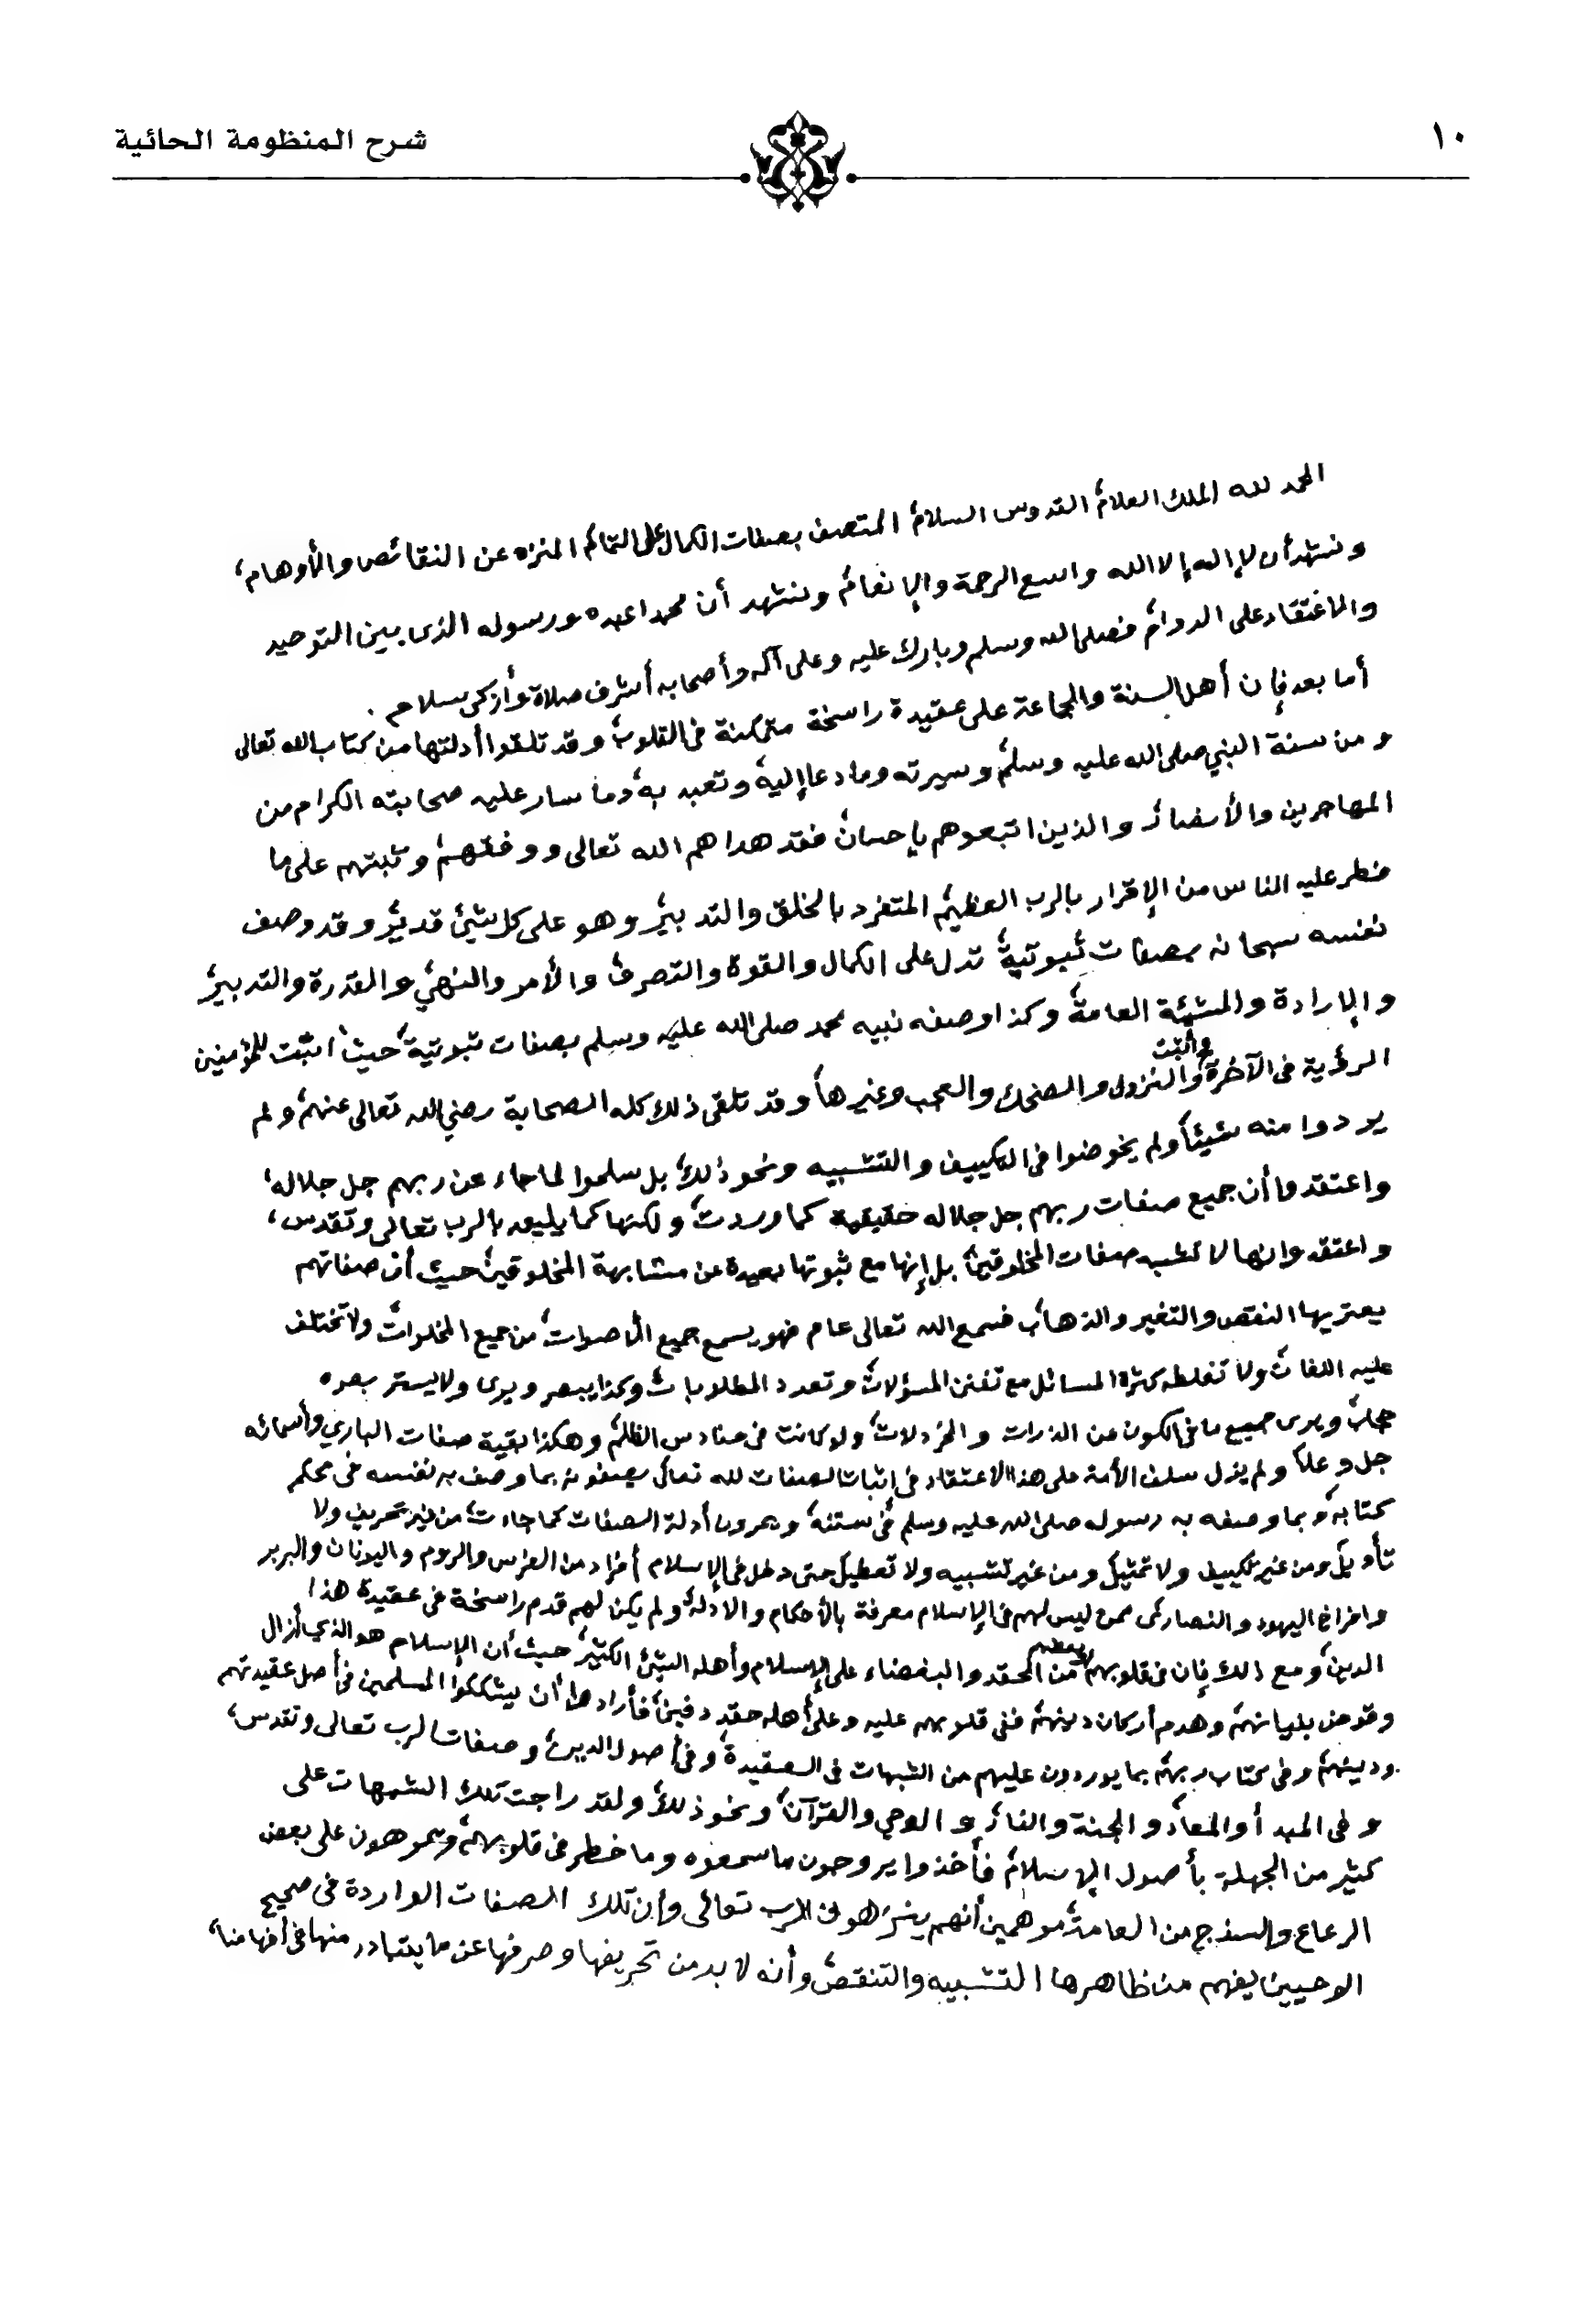 ١٠
شرح المنظومة الحائية
الحمد لله الملك العلام، القدوس السلام، المتصف بصفات الكمال على التمام، المنزه عن النقائص والأوهام،
ونشهد أن لا إله إلا الله واسع الرحمة والإنعام، ونشهد أن محمدا عبده ورسوله الذى بين التوحيد
والاعتقاد على الدوام، فصلى الله وسلم وبارك عليه وعلى آله وأصحابه أشرف صلاة وأزكى سلام.
أما بعد فإن أهل السنة والجماعة على عقيدة راسخة متمكنة فى القلوب، وقد تلقوا أدلتها من كتاب الله تعالى
ومن سنة النبي صلى الله عليه وسلم، وسيرته وما دعا إليه، وتعبد به، وما سار عليه صحابته الكرام من
المهاجرين والأنصار، والذين اتبعوهم بإحسان، فقد هداهم الله تعالى ووفقهم، وثبتهم على ما
فطر عليه الناس من الإقرار بالرب العظيم، المتفرد بالخلق والتدبير، وهو على كل شيئ قدير، وقد وصف
نفسه سبحانه بصفات ثبوتية، تدل على الكمال والقوة والتصرف، والأمر والنهي، والقدرة والتدبير،
والإرادة والمشيئة العامة، وكذا وصفه نبيه محمد صلى الله عليه وسلم بصفات ثبوتية، حيث أثبت للمؤمنين
الرؤية فى الآخرة، وأثبت النزول والضحك والعجب وغيرها، وقد تلقى ذلك كله الصحابة رضي الله تعالى عنهم، ولم
يردوا منه شيئاً، ولم يخوضوا فى التكييف والتشبيه ونحو ذلك، بل سلموا لما جاء عن ربهم جل جلاله،
واعتقدوا أن جميع صفات ربهم جل جلاله حقيقية كما وردت، ولكنها كما يليق بالرب تعالى وتقدس،
واعتقدوا انها لا تشبه صفات المخلوقين، بل إنها مع ثبوتها بعيدة عن مشابهة المخلوقين، حيث أن صفاتهم
يعتريها النقص والتغير والذهاب، فسمع الله تعالى عام فهو يسمع جميع الأصوات، من جميع المخلوات، ولا تختلف
عليه اللغات، ولا تغلطه كثرة المسائل مع تفنن المسؤلات، وتعدد المطلوبات، وكذا يبصر ويرى ولا يستر بصره
حجاب، ويرى جميع ما فى الكون من الذرات والخردلات، ولو كانت فى حنادس الظلم، وهكذا بقية صفات الباري وأسمائه
جل وعلا، ولم يزل سلف الأمة على هذا الاعتقاد فى إثبات الصفات لله تعالى يصفونه بما وصف به نفسه فى محكم
كتابه، وبما وصفه به رسوله صلى الله عليه وسلم فى سنته، ويمرون أدلة الصفات كما جاءت، من غير تحريف ولا
تأويل، ومن غير تكييف ولا تمثيل، ومن غير تشبيه ولا تعطيل، حتى دخل فى الإسلام أفراد من الفرس والروم واليونان والبربر
وافراخ اليهود والنصارى ممن ليس لهم فى الإسلام معرفة بالأحكام والادلة، ولم يكن لهم قدم راسخة فى عقيدة هذا
الدين، ومع ذلك فإن فى قلوب بعضهم من الحقد والبغضاء على الإسلام وأهله الشيئ الكثير، حيث أن الإسلام هو الذي أزال
وقوض بنيانهم، وهدم أركان دينهم، ففى قلوبهم عليه وعلى أهله حقد دفين، فأرادوا أن يشككوا المسلمين فى أصل عقيدتهم
ودينهم، وفى كتاب ربهم، بما يوردون عليهم من الشبهات فى العقيدة، وفى أصول الدين، وصفات الرب تعالى وتقدس،
وفى المبدأ والمعاد، والجنة والنار، والوحي والقرآن، ونحو ذلك، ولقد راجت تلك الشبهات على
كثير من الجهلة بأصول الإسلام، فأخذوا يروجون ما سمعوه وما خطر فى قلوبهم، ويموهون على بعض
الرعاع والسذج من العامة، موهمين أنهم ينزهون الرب تعالى، وأن تلك الصفات الواردة فى صحيح
الوحيين يفهم من ظاهرها التشبيه والتنقص، وأنه لا بد من تحريفها وصرفها عن ما يتبادر منها فى أفهامنا،